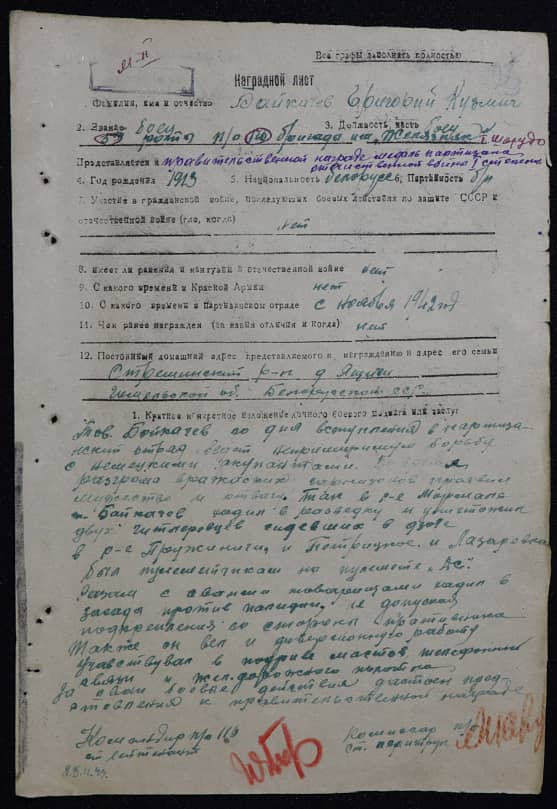 Все графы заполнять полностью
Наградной лист
1. Фамилия, имя и отчество Байкачев Григорий Кузьмич
2. Звание боец 3. Должность, часть боец
роты п/о бригада им. Железняк
Представляется к правительственной награде медаль партизана
отечественной войны I степени
4. Год рождения 1923 5. Национальность белорусс 6. Партийность б/п
7. Участие в гражданской войне, последующих боевых действиях по защите СССР и
отечественной войне (где, когда)
нет
8. Имеет ли ранения и контузии в отечественной войне нет
9. С какого времени в Красной Армии нет
10. С какого времени в партизанском отряде с ноября 1942 год
11. Чем ранее награжден (за какие отличия и когда) нет
12. Постоянный домашний адрес представляемого к награждению и адрес его семьи
Стрешинский р-н д.
Гомельской об. Белорусской ССР.
1. Краткое конкретное изложение личного боевого подвига или заслуг
Тов. Бойкачев со дня вступления в партиза-
нский отряд ведет непримиримую борьбу
с немецкими окупантами.
разгрома вражеских гарнизонов проявил
мужество и отвагу. Так в р-не
т. Байкачов ходил в разведку и уничтожил
двух гитлеровцев сидевших в дзоте
в р-не Пружиничи, и и Лазаровка
был пулеметчиком на пулемете „ДС“.
Разам с своими товарищами ходил в
засада против не допуская
подкрепления со стороны противника
Также он вел и диверсионную работу
участвувал в подриве мастов, телефонной
связи и жел.дорожного полотна
За свои боевые действия достоен пред-
ставления к правительственной награде
Командир п/о 113 Комиссар п/о
ст. лейтенант ст. политрук